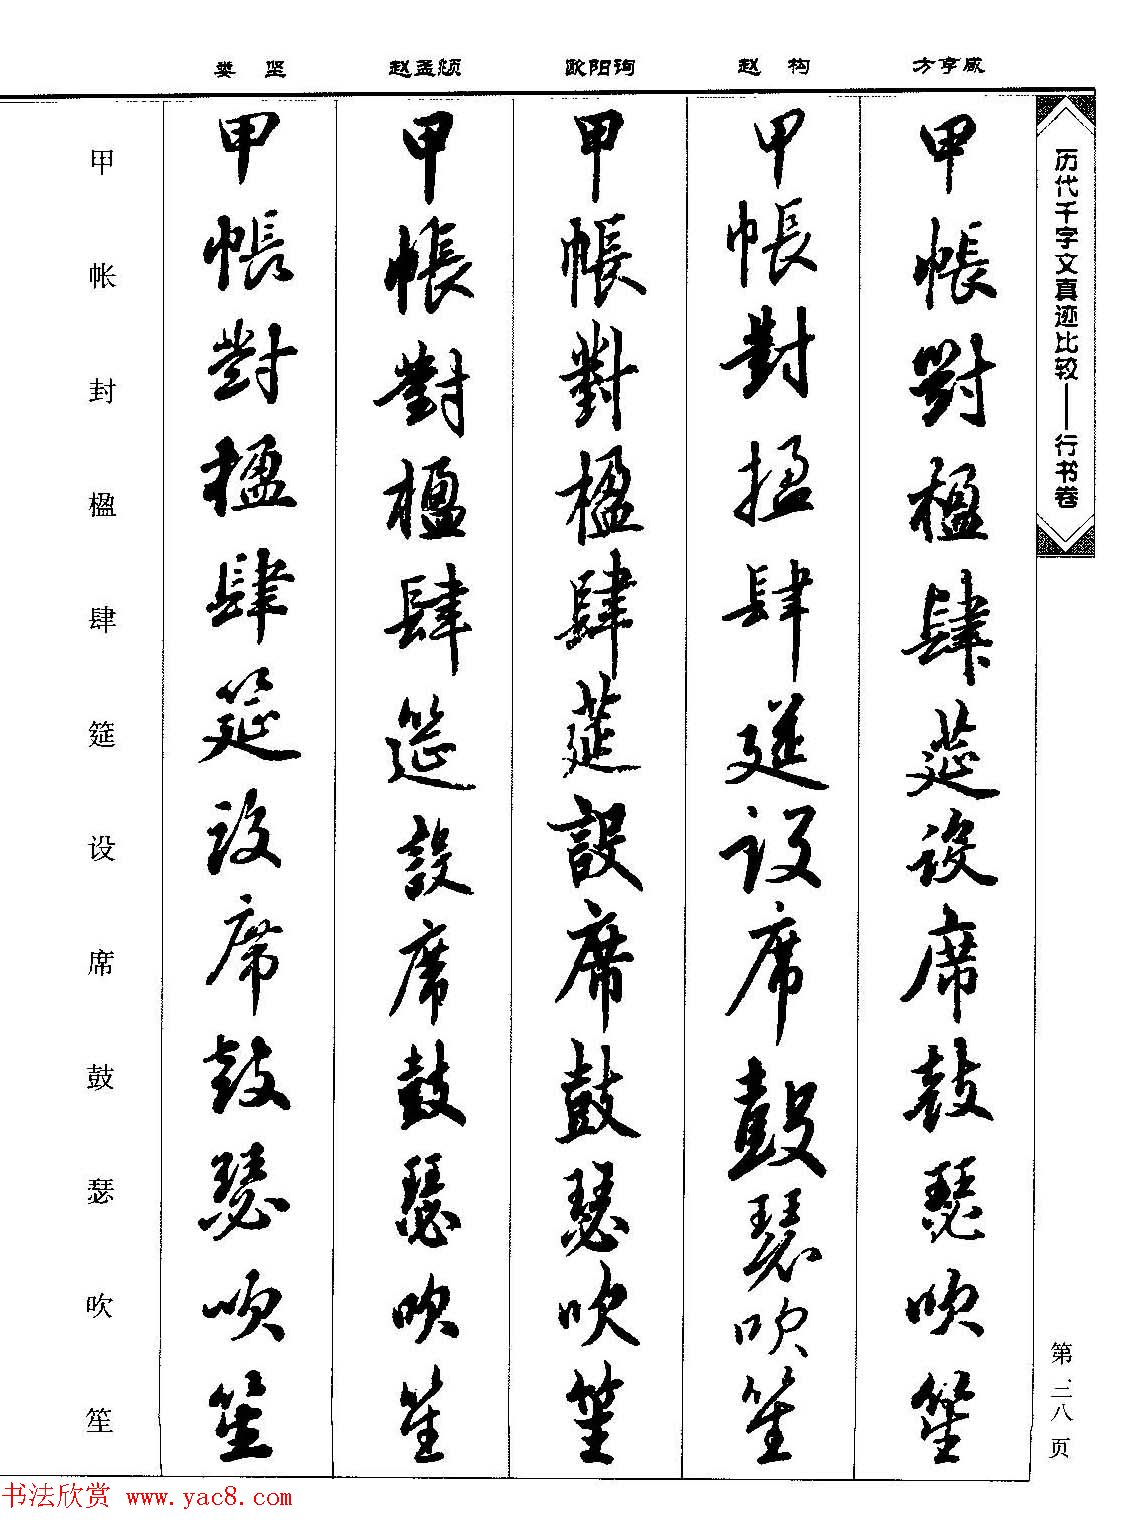 历代千字文真迹比较——行书卷
第三八页
方亨咸
赵构
欧阳询
赵孟頫
娄坚
甲帐對楹肆筵設席鼓瑟吹笙
甲帳對楹肆筵設席鼓瑟吹笙
甲帳對楹肆筵設席鼓瑟吹笙
甲帳對楹肆筵設席鼓瑟吹笙
甲帳對楹肆筵設席鼓瑟吹笙
甲帐封楹肆筵设席鼓瑟吹笙
书法欣赏 www.yac8.com